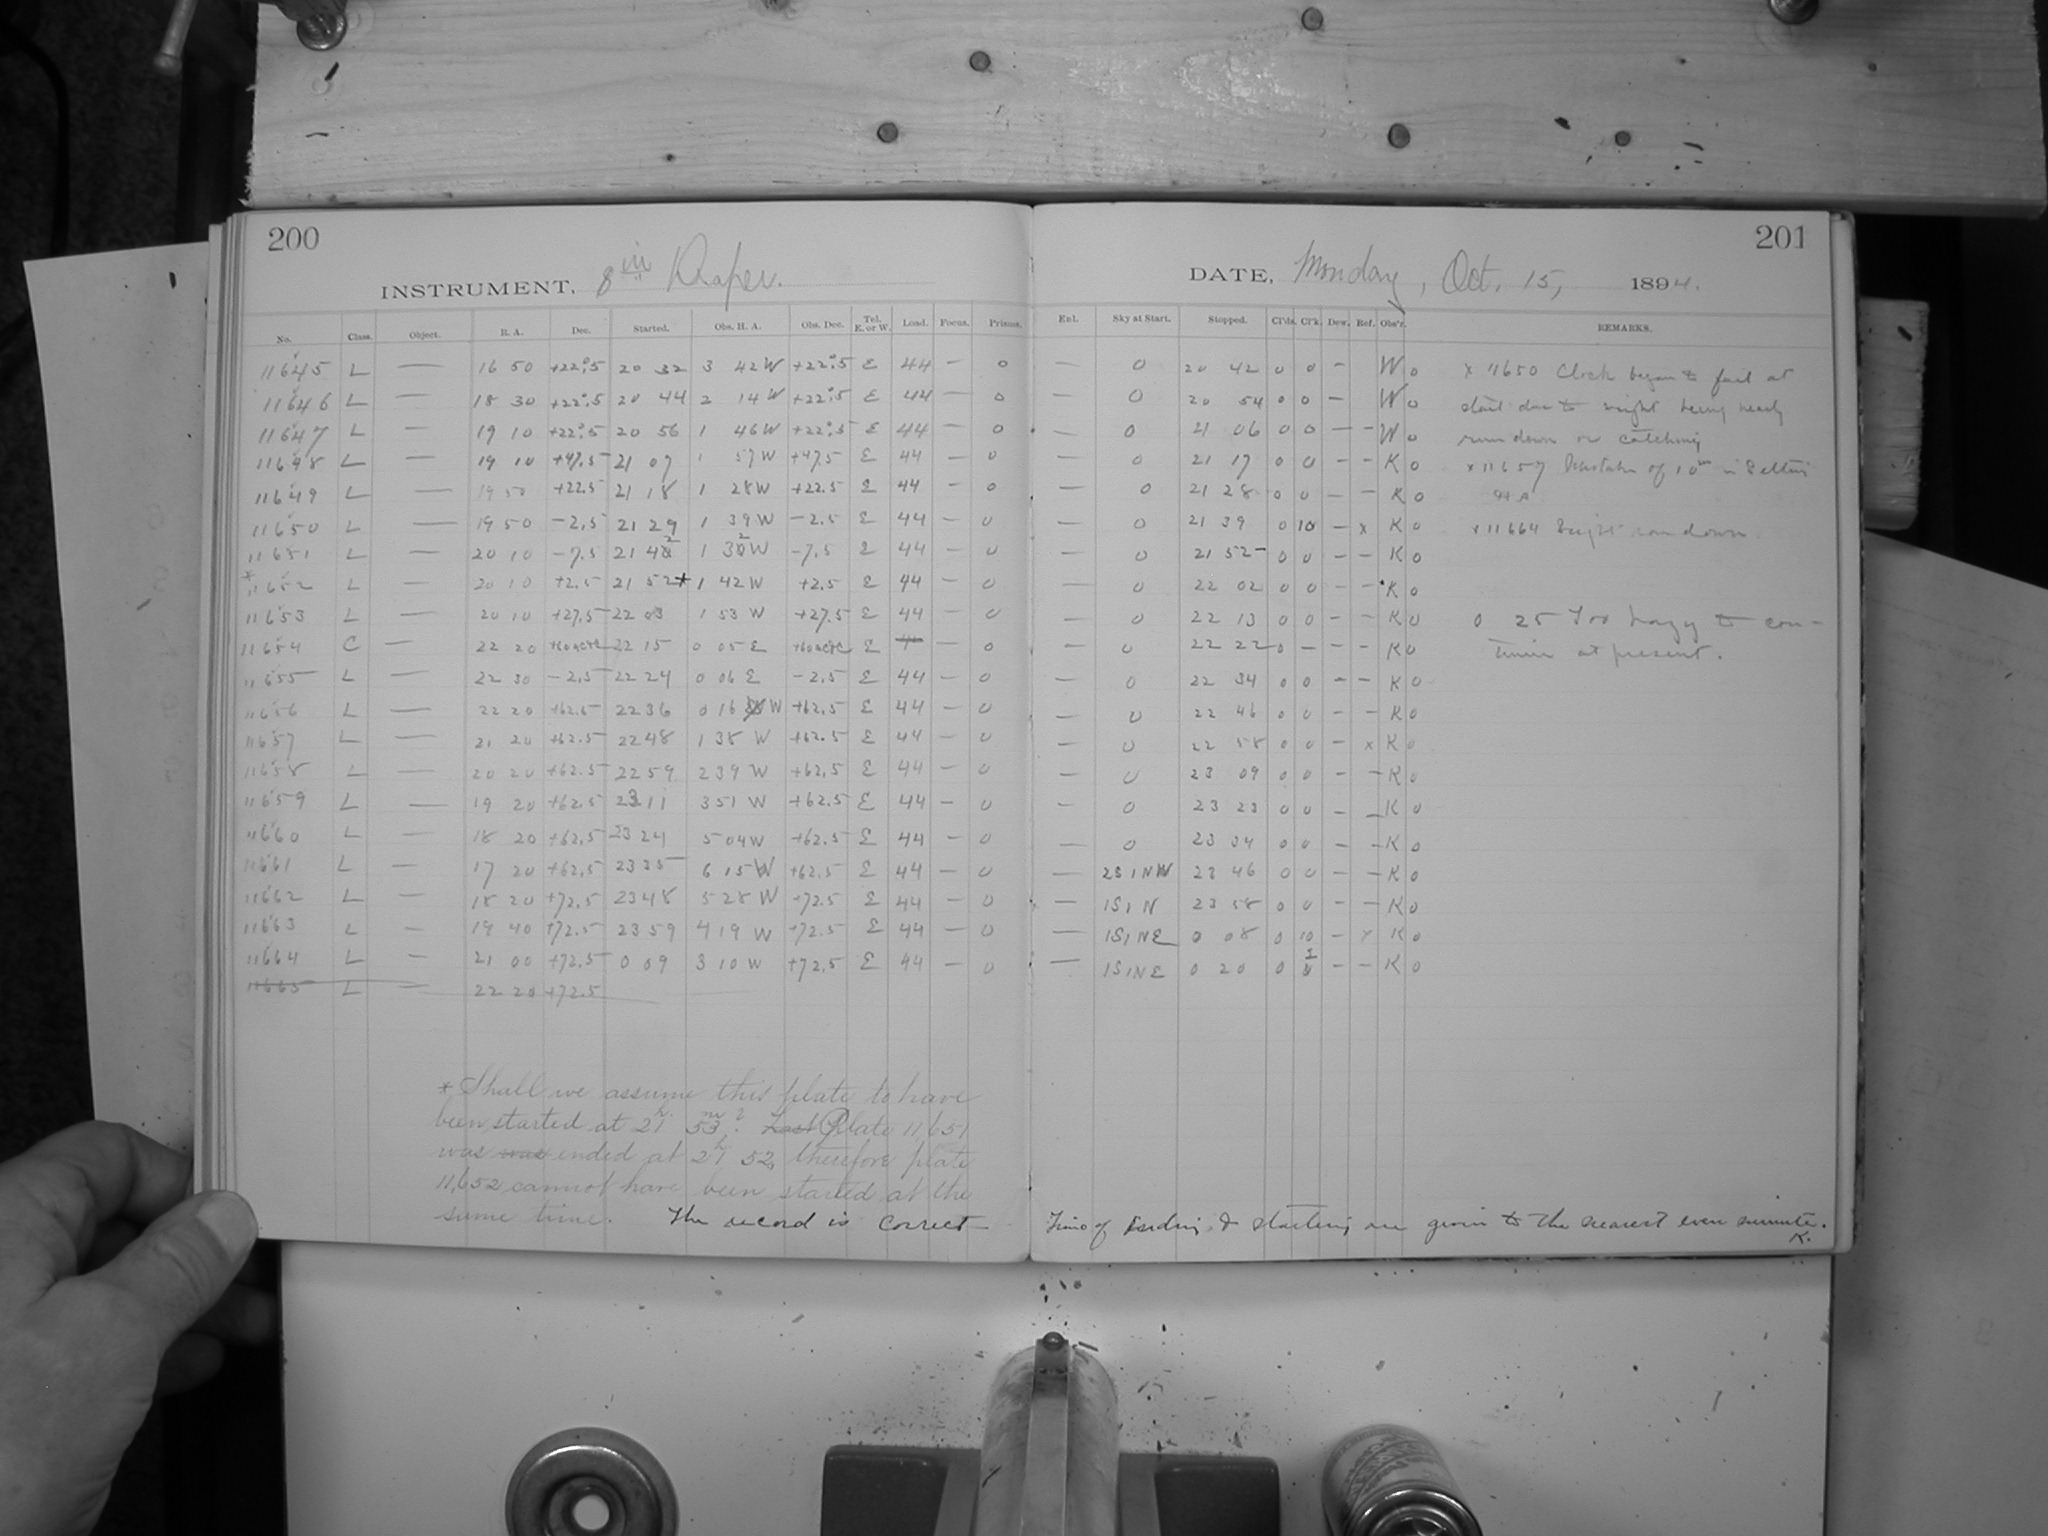 200
INSTRUMENT, 8 in Draper.
No. Class. Object. R. A. Dec. Started. Obs. H. A. Obs. Dec. Tel. E. or W. Load. Focus. Prisms.
11645 L — 16 50 +22°.5 20 32 3 42 W +22°.5 E 44 — 0
11646 L — 18 30 +22°.5 20 44 2 14 W +22°.5 E 44 — 0
11647 L — 19 10 +22°.5 20 56 1 46 W +22°.5 E 44 — 0
11648 L — 19 10 +47.5 21 07 1 57 W +47.5 E 44 — 0
11649 L — 19 50 +22.5 21 18 1 28 W +22.5 E 44 — 0
11650 L — 19 50 -2.5 21 29 1 39 W -2.5 E 44 — 0
11651 L — 20 10 -7.5 21 42 1 32 W -7.5 E 44 — 0
*11652 L — 20 10 +2.5 21 52* 1 42 W +2.5 E 44 — 0
11653 L — 20 10 +27.5 22 03 1 53 W +27.5 E 44 — 0
11654 C — 22 20 22 15 0 05 E E — 0
11655 L — 22 30 -2.5 22 24 0 06 E -2.5 E 44 — 0
11656 L — 22 20 +62.5 22 36 0 16 W +62.5 E 44 — 0
11657 L — 21 20 +62.5 22 48 1 38 W +62.5 E 44 — 0
11658 L — 20 20 +62.5 22 59 2 39 W +62.5 E 44 — 0
11659 L — 19 20 +62.5 23 11 3 51 W +62.5 E 44 — 0
11660 L — 18 20 +62.5 23 24 5 04 W +62.5 E 44 — 0
11661 L — 17 20 +62.5 23 35 6 15 W +62.5 E 44 — 0
11662 L — 18 20 +72.5 23 48 5 28 W +72.5 E 44 — 0
11663 L — 19 40 +72.5 23 59 4 19 W +72.5 E 44 — 0
11664 L — 21 00 +72.5 0 09 3 10 W +72.5 E 44 — 0
11665 L — 22 20 +72.5
* Shall we assume this plate to have
been started at 21h 53m? Last Plate 11,651
was was ended at 21h 52, therefore plate
11,652 cannot have been started at the
same time. The record is correct
201
DATE, Monday, Oct. 15, 1894.
Enl. Sky at Start. Stopped. Cl'ds. Cl'k. Dew. Ref. Obs'r. REMARKS.
— 0 20 42 0 0 — W 0 x 11650 Clock began to fail at
— 0 20 54 0 0 — W 0 start due to weight being nearly
— 0 21 06 0 0 — — W 0 run down or catching
— 0 21 17 0 0 — — K 0 x 11657 Mistake of 10m in Setting
— 0 21 28 0 0 — — K 0 H A
— 0 21 39 0 10 — x K 0 x 11664 Weight run down
— 0 21 52 0 0 — — K 0
— 0 22 02 0 0 — — K 0
— 0 22 13 0 0 — — K 0 0 25 Too hazy to con-
— 0 22 22 0 — — — K 0 tinue at present.
— 0 22 34 0 0 — — K 0
— 0 22 46 0 0 — — K 0
— 0 22 58 0 0 — x K 0
— 0 23 09 0 0 — — K 0
— 0 23 23 0 0 — — K 0
— 0 23 34 0 0 — — K 0
— 2S1NW 23 46 0 0 — — K 0
— 1S1N 23 58 0 0 — — K 0
— 1S1NE 0 08 0 10 — x K 0
— 1S1NE 0 20 0 — — K 0
Time of Ending & starting are given to the nearest even minute.
K.